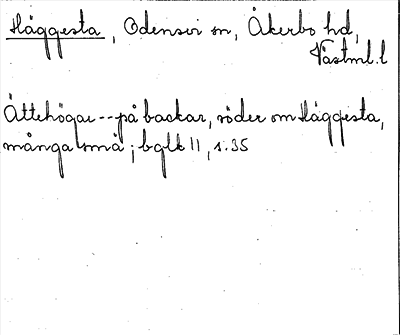 Häggesta, Odensvi sn, Åkerbo hd,
Västml. l
Ättehögar -- på backar, söder om Häggesta,
många små; bglk 11, s. 35